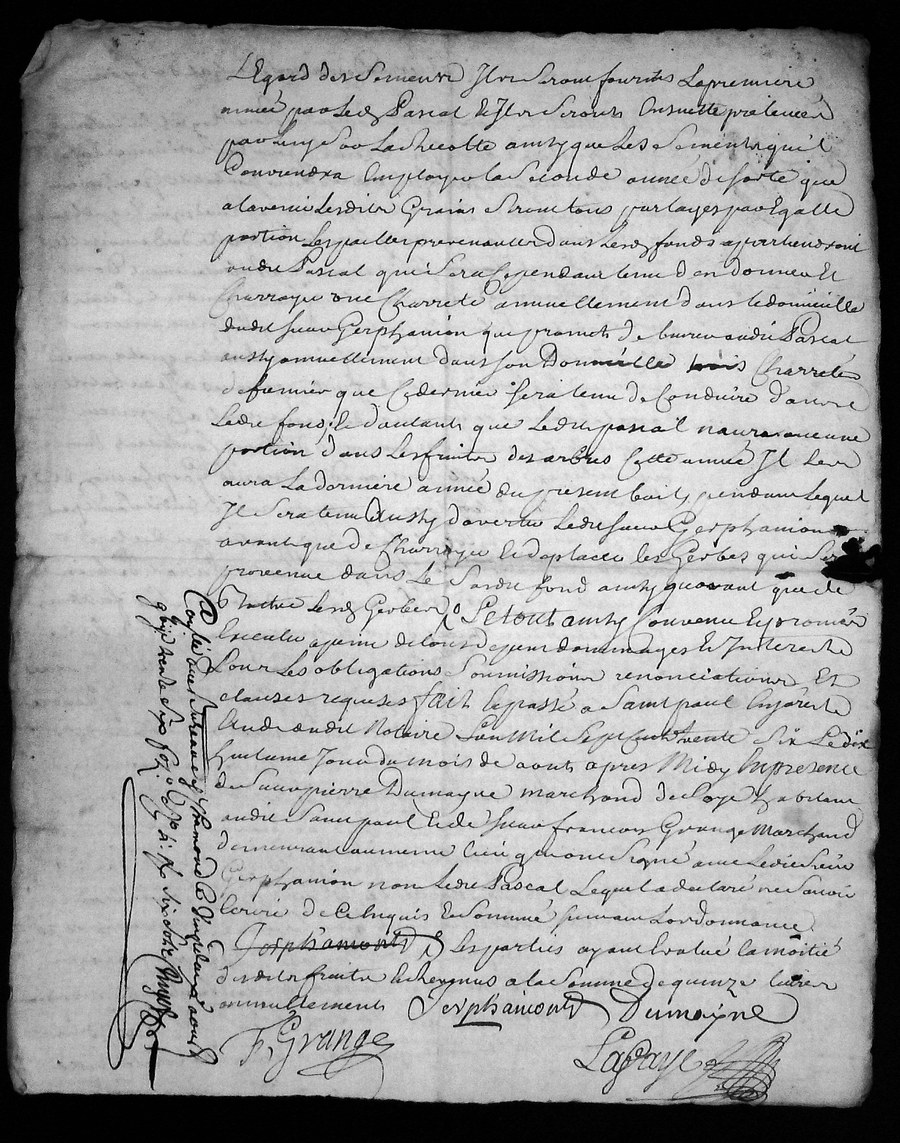 L'Egard des Semences Ils Seront fournits La premiere
année par Led Pascal Et Ils Seront Ensuitte prelevés
par luy Sur La Recolte ainsy que Les Semences qu'il
Conviendra Employer la Seconde année de sorte que
a lavenir Lesdits Grains Seront tous partages par Egalle
portion Les pailles provenantes dans Lesd fonds apartiendront
audit Pascal qui Sera Cependant tenu d'en donner Et
Charroyer une Charreté annuellement dans le domicille
dudit Sieur Gerphanion qui promet de livrer audit Pascal
aussy annuellement dans son Domicille trois Charretés
de fumier que Ce dernier Sera tenu de Conduire dans
Ledit fond, Et d'autant que Ledit pascal n'aura aucune
portion dans Les fruits des arbres Cette année Il Les
aura La derniere année du present bail, pendant Lequel
Il Sera tenu Aussy d'avertir Ledit Sieur Gerphanion
avant que de Charroyer Et deplacer les Gerbes qui
provenue dans Le Susdit fond ainsy qu'avant que de
Battre Lesd Gerbes, Et tout ainsy Convenu Et promis
Executer a peine de tous depens dommages Et Interests
Pour Les obligations Soumissions renonciations Et
clauses requises fait Et passé a Saint paul En
Etude dudit Notaire L'an Mil Sept Cent trente Six Le dix
huitieme Jour du mois de aout apres Midy En presence
de Sieur pierre Dumayne marchand de Soye habitant
audit Saint paul Et de Sieur francois Grange Marchand
demeurant au meme lieu qui ont Signé avec Ledit Sieur
Gerphanion non Ledit Pascal Lequel a declaré ne Savoir
Ecrire de Ce Enquis Et Sommé Suivant L'ordonnance
Gerphanion Les parties ayant Evalué la moitié
desdits fruits a la Somme de quinze livres
annuellement Gerphanion Dumayne
F. Grange
Lafaye